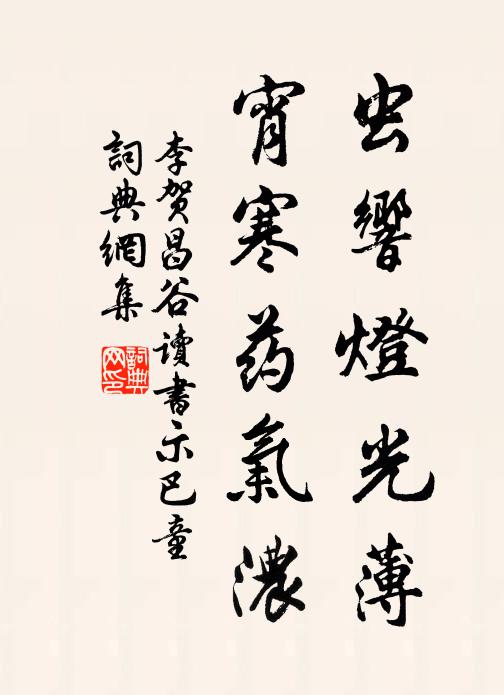 虫響燈光薄
宵寒药氣濃
李賀昌谷讀書示巴童
詞典網集
詞典网印